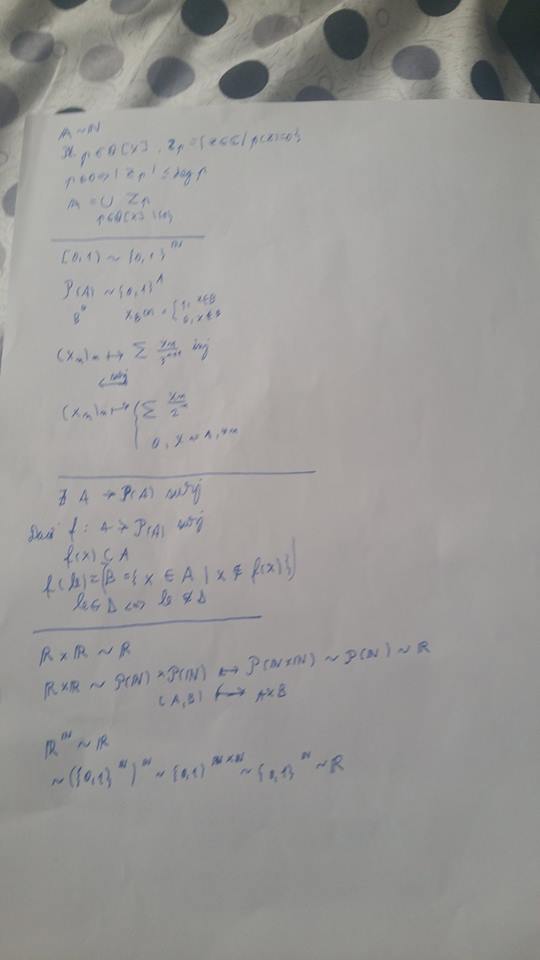 A ~ ℕ
p ∈ ℚ[X], Z_p = {z ∈ ℂ | p(z)=0}
p ≠ 0 => |Z_p| ≤ deg p
A = ∪ Z_p
p ∈ ℚ[X] \ {0}
[0,1) ~ {0,1}^ℕ
P(A) ~ {0,1}^A
B χ_B(x) = { 1, x∈B
0, x∉B
(x_n)_n ↦ Σ x_n/3^{n+1} inj
surj
(x_n)_n ↦ { Σ x_n/2^n
0, x_n = 1, ∀n
∄ A → P(A) surj
Dacă f: A → P(A) surj
f(x) ⊂ A
f(b) = (B = {x ∈ A | x ∉ f(x)})
b ∈ B <=> b ∉ B
ℝ × ℝ ~ ℝ
ℝ×ℝ ~ P(ℕ) × P(ℕ) ↔ P(ℕ×ℕ) ~ P(ℕ) ~ ℝ
(A,B) ⟷ A×B
ℝ^ℕ ~ ℝ
~ ({0,1}^ℕ)^ℕ ~ {0,1}^{ℕ×ℕ} ~ {0,1}^ℕ ~ ℝ